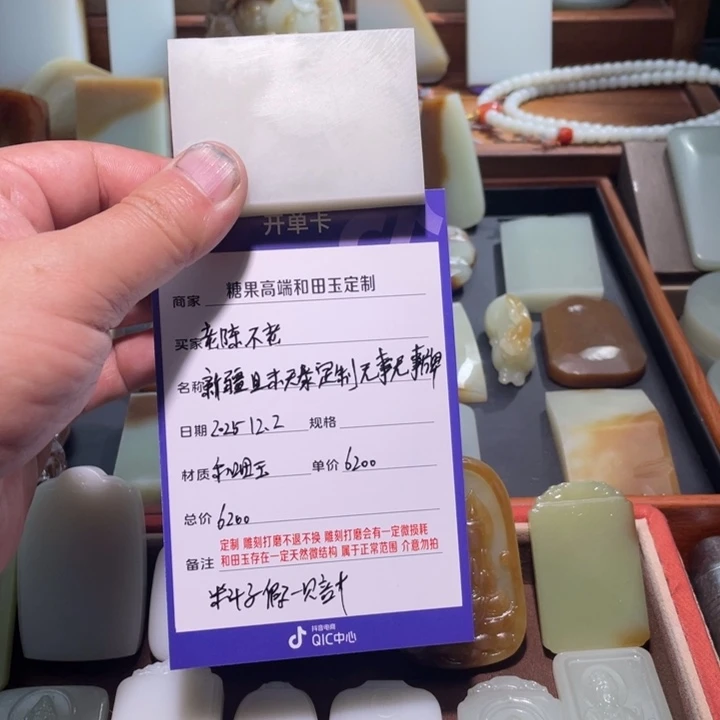 开单卡
商家 糖果高端和田玉定制
买家 老陈不老
名称 新疆且末天泰定制无事牌
日期 2025 12.2 规格
材质 和田玉 单价 6200
总价 6200
备注 定制 雕刻打磨不退不换 雕刻打磨会有一定微损耗
和田玉存在一定天然微结构 属于正常范围 介意勿拍
料子假一只赔
抖音电商
QIC中心